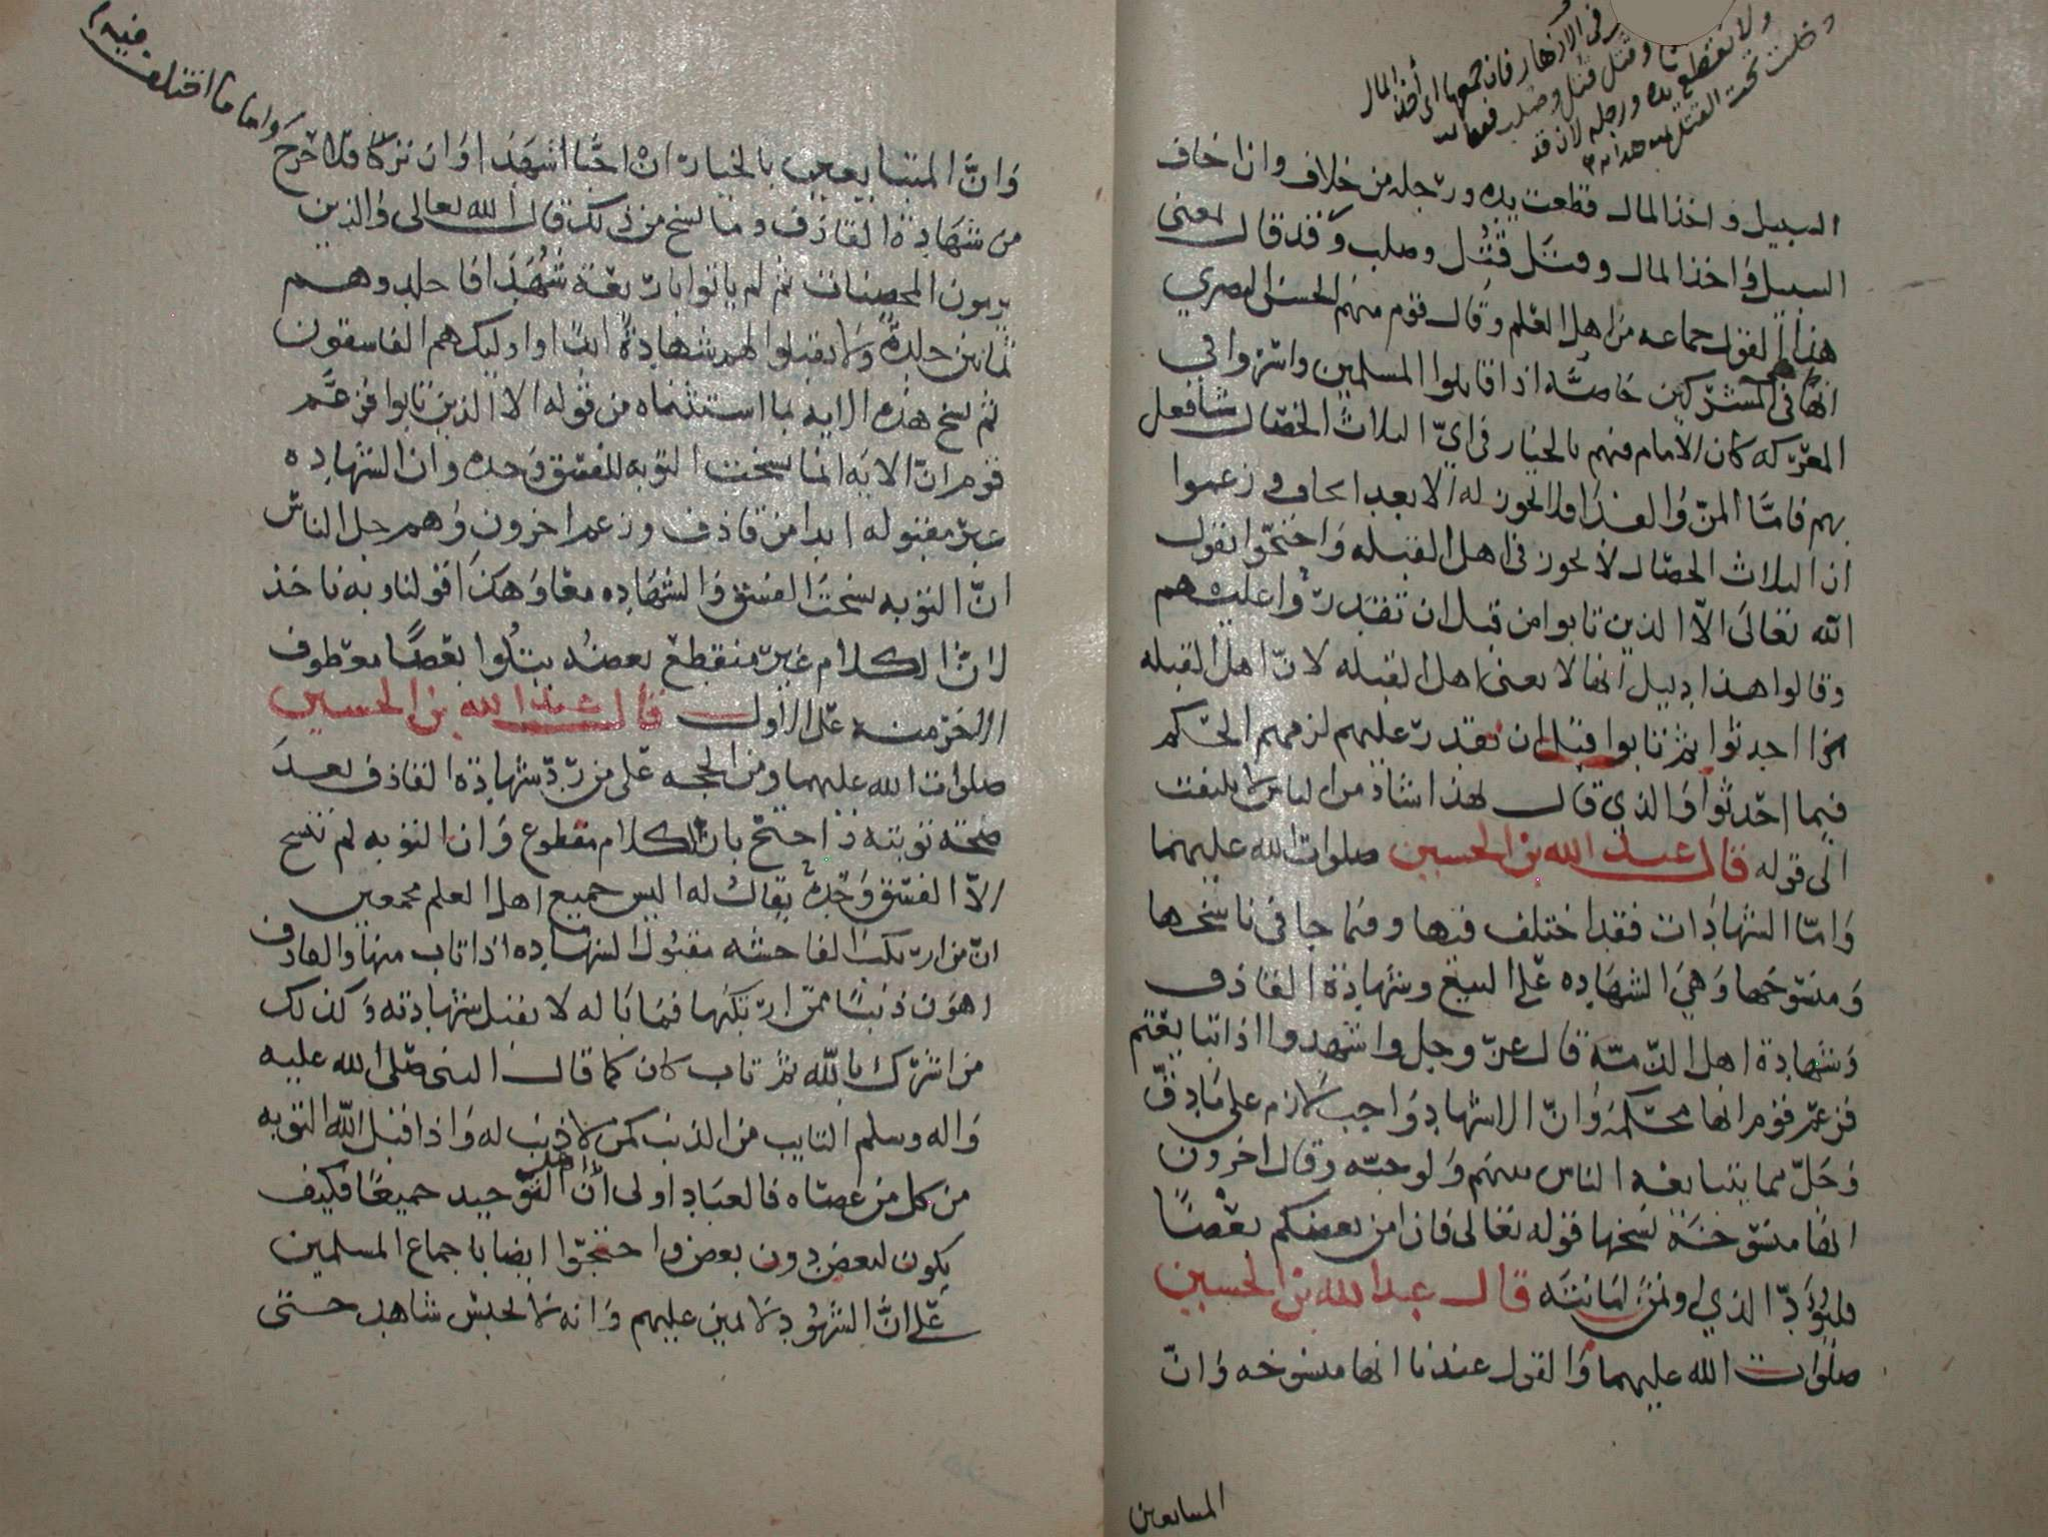 في الازهار فان جمعها اي أخذ المال
وقتل قتل وصلب فقط
ولا تقطع يده ورجله لان قد
دخلت تحت القتل
السبيل واخذ المال قطعت يده ورجله من خلاف وان اخاف
السبيل وَاخذ المال وقتل قُتل وصلب وَقد قال بمعنى
هذا القول جماعه من اهل العلم وقال قوم منهم الحسن البصري
انها في المشركين خاصَّه اذا قاتلوا المسلمين واسروا في
المعركه كان الامام فيهم بالخيار في ايّ الثلاث الخصال شافعل
بهم فامّا المنّ وَالفدا فلا تجوز له الا بعد الخاف وزعموا
ان الثلاث الخصال لا تجوز في اهل القبله وَاحتجّوا بقول
الله تعالى الاّ الذين تابوا من قبل ان تقدرُوا عليهم
وقالوا هذا دليل انها لا يعني اهل القبله لانّ اهل القبله
اذا احدثوا ثم تابوا قبل ان تقدر عليهم لزمهم الحكم
فيما احدثوا وَالذي قال بهذا شاذ من الناس لا يلتفت
الى قوله قال عبد الله بن الحسين صلوات الله عليهما
وَامّا الشهادات فقد اختلف فيها وفيما جا في ناسخها
وَمنسُوخها وَهيَ الشهَاده عَلى البيع وشهادة القاذف
وَشهادة اهل الذمّه قال عزّ وجل واشهدوا اذا تبايعتم
فزعم قوم انها محكمه وَانّ الاشهاد وَاجب لازم على مَا دقّ
وَجَلّ مما يتبايعه الناس بينهم وَلو حبّه وقال اخرون
انها منسُوخَة نسخها قوله تعالى فان امن بعضكم بعضًا
فليؤدّ الذي اوتمن امَانته قال عبد الله بن الحسين
صلوات الله عليهما وَالقول عندنا انها منسوخه وَانّ
المتبايعين
وَاما ما اختلف فيه
وَانَّ المتبايعين بالخيار انْ احبّا اشهَدا اوْ ان تركا فلا حرج
من شهَادة القاذف وما نسخ من ذلك قال الله تعالى وَالذين
يرمون المحصنات ثم لم ياتوا باربعة شُهَدا فاجلدوهم
ثمانين جلدةً وَلا تقبلوا لهم شهادةً ابدًا واوليك هم الفاسقون
ثم نسخ هذه الايه بما استثناه من قوله الا الذين تابوا فزعَم
قوم انّ الايَه انما نسخت التوبه للفسق وَحده وان الشهاده
غير مقبوله ابدا من قاذف وزعم اخرون وَهم جل الناس
انّ التوبه نسَخت الفسق وَالشهَاده معًا وَهكذا قولنا وبه ناخذ
لانّ الكلام غير منقطع بعضُه يتلُوا بعضًا معطوف
الاخر منه على الاول قال عبد الله بن الحسين
صلوات الله عليهما ومن الحجه عَلى من رَدّ شهادة القاذف بعدَ
صحّه توبته ذا احتج بان الكلام مقطوع وَان التوبه لم تنسخ
الاّ الفسق وَحده يقال له اليس جميع اهل العلم مجمعين
انّ من ارتكب الفاحشه مقبول الشهاده اذا تاب منها والقاذف
اهوَن ذنبًا ممّن ارتكبَها فمَا بَاله لا تقبل شهادته وَكذلك
من اشرك بالله ثم تاب كان كما قال النبى صَلى الله عليه
وَاله وسلم التايب من الذنب كمن لا ذنب له وَاذا قبل اللّه التوبه
من كل من عصَاه فالعبَاد اولى انّ اهل التوحيد جميعًا فكيف
يكون لبعض دون بعض واحتجّوا ايضا باجماع المسلمين
عَلى انَّ الشهُود لا يمين عليهم وَانه لا يحبس شاهد حتى